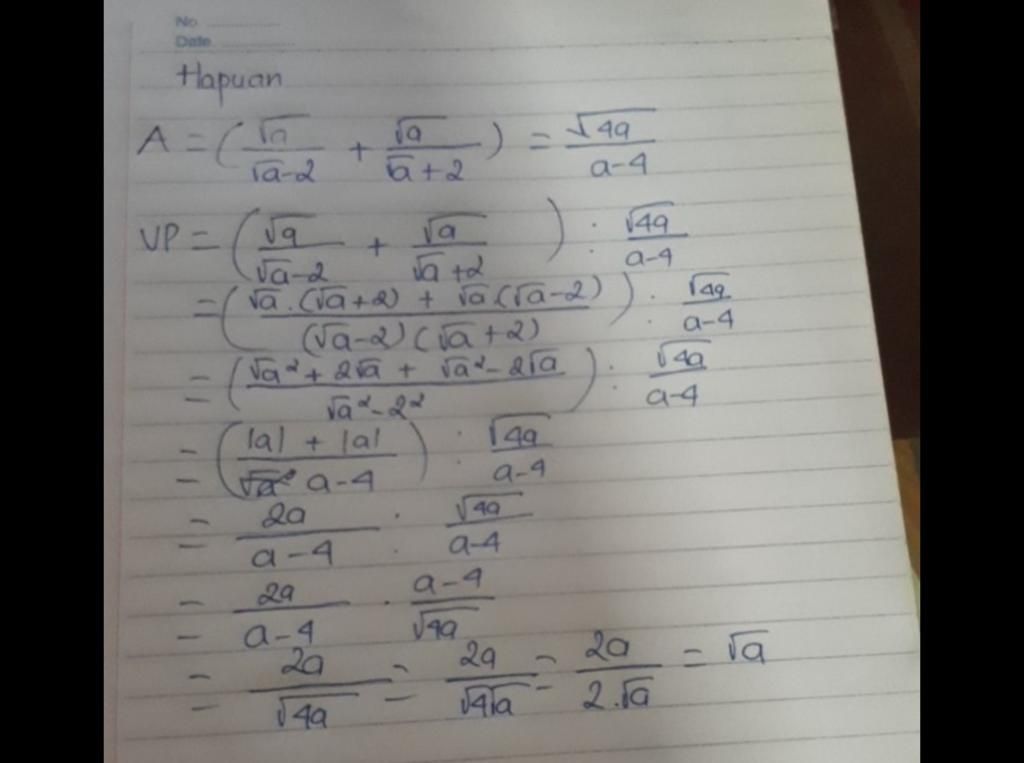 No
Date
Hapuan
A = ( √a / √a-2 + √a / √a+2 ) = √4a / a-4
VP = ( √a / √a-2 + √a / √a+2 ) : √4a / a-4
= ( √a.(√a+2) + √a(√a-2) / (√a-2)(√a+2) ) : √4a / a-4
= ( √a² + 2√a + √a² - 2√a / √a² - 2² ) : √4a / a-4
= ( |a| + |a| / a-4 ) : √4a / a-4
= 2a / a-4 : √4a / a-4
= 2a / a-4 . a-4 / √4a
= 2a / √4a = 2a / √4√a = 2a / 2.√a = √a